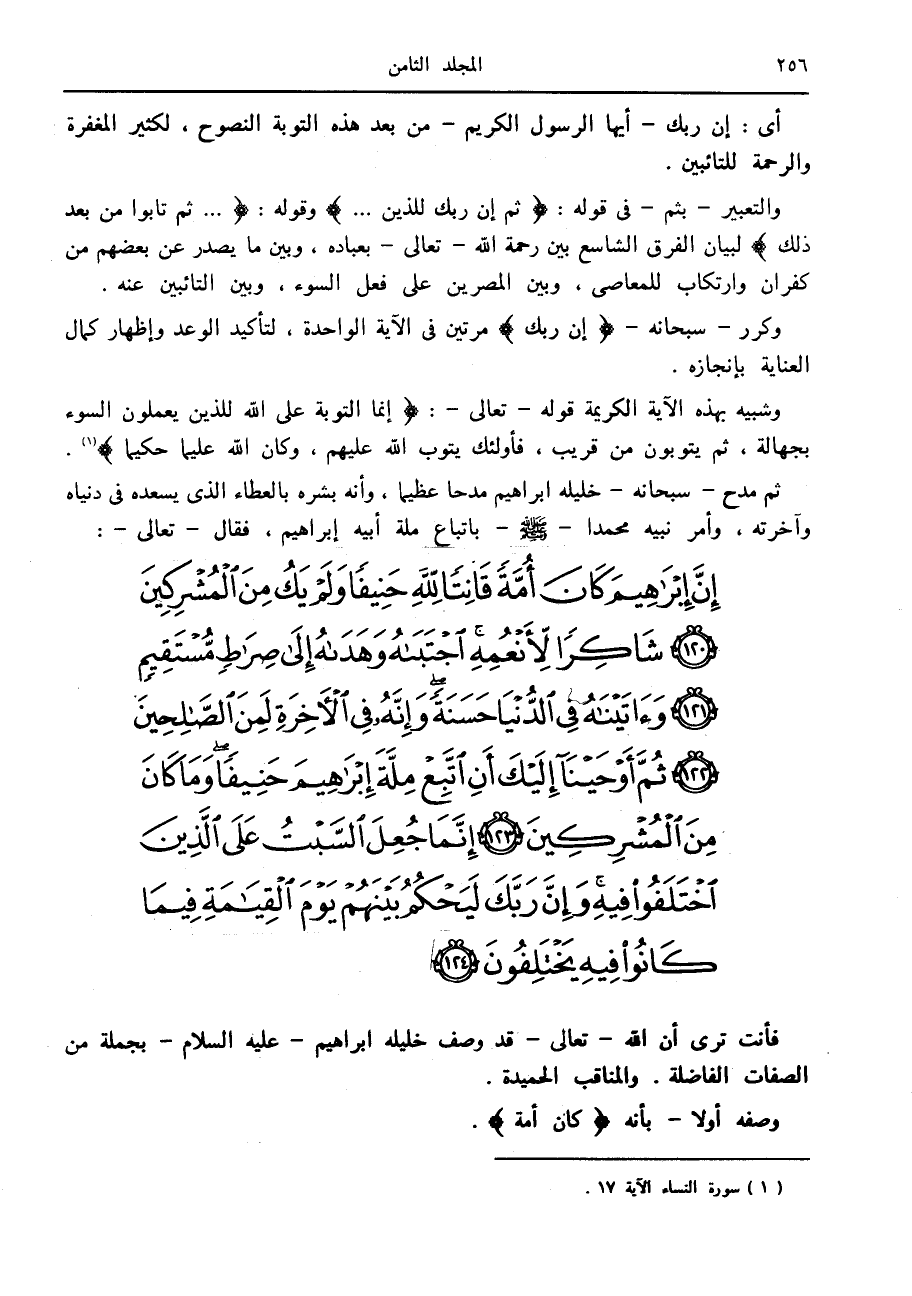 ٢٥٦ المجلد الثامن
أى : إن ربك – أيها الرسول الكريم – من بعد هذه التوبة النصوح ، لكثير المغفرة
والرحمة للتائبين .
والتعبير – بثم – فى قوله : ﴿ ثم إن ربك للذين ... ﴾ وقوله : ﴿ ... ثم تابوا من بعد
ذلك ﴾ لبيان الفرق الشاسع بين رحمة الله – تعالى – بعباده ، وبين ما يصدر عن بعضهم من
كفران وارتكاب للمعاصى ، وبين المصرين على فعل السوء ، وبين التائبين عنه .
وكرر – سبحانه – ﴿ إن ربك ﴾ مرتين فى الآية الواحدة ، لتأكيد الوعد وإظهار كمال
العناية بإنجازه .
وشبيه بهذه الآية الكريمة قوله – تعالى – : ﴿ إنما التوبة على الله للذين يعملون السوء
بجهالة ، ثم يتوبون من قريب ، فأولئك يتوب الله عليهم ، وكان الله عليما حكيما ﴾(١) .
ثم مدح – سبحانه – خليله ابراهيم مدحا عظيما ، وأنه بشره بالعطاء الذى يسعده فى دنياه
وآخرته ، وأمر نبيه محمدا – ﷺ – باتباع ملة أبيه إبراهيم ، فقال – تعالى – :
إِنَّ إِبْرَٰهِيمَ كَانَ أُمَّةً قَانِتًا لِّلَّهِ حَنِيفًا وَلَمْ يَكُ مِنَ ٱلْمُشْرِكِينَ
﴿١٢٠﴾ شَاكِرًا لِّأَنْعُمِهِ ۚ ٱجْتَبَىٰهُ وَهَدَىٰهُ إِلَىٰ صِرَٰطٍ مُّسْتَقِيمٍ
﴿١٢١﴾ وَءَاتَيْنَٰهُ فِى ٱلدُّنْيَا حَسَنَةً ۖ وَإِنَّهُۥ فِى ٱلْأَخِرَةِ لَمِنَ ٱلصَّٰلِحِينَ
﴿١٢٢﴾ ثُمَّ أَوْحَيْنَآ إِلَيْكَ أَنِ ٱتَّبِعْ مِلَّةَ إِبْرَٰهِيمَ حَنِيفًا ۖ وَمَا كَانَ
مِنَ ٱلْمُشْرِكِينَ ﴿١٢٣﴾ إِنَّمَا جُعِلَ ٱلسَّبْتُ عَلَى ٱلَّذِينَ
ٱخْتَلَفُوا۟ فِيهِ ۚ وَإِنَّ رَبَّكَ لَيَحْكُمُ بَيْنَهُمْ يَوْمَ ٱلْقِيَٰمَةِ فِيمَا
كَانُوا۟ فِيهِ يَخْتَلِفُونَ ﴿١٢٤﴾
فأنت ترى أن الله – تعالى – قد وصف خليله ابراهيم – عليه السلام – بجملة من
الصفات الفاضلة . والمناقب الحميدة .
وصفه أولا – بأنه ﴿ كان أمة ﴾ .
( ١ ) سورة النساء الآية ١٧ .